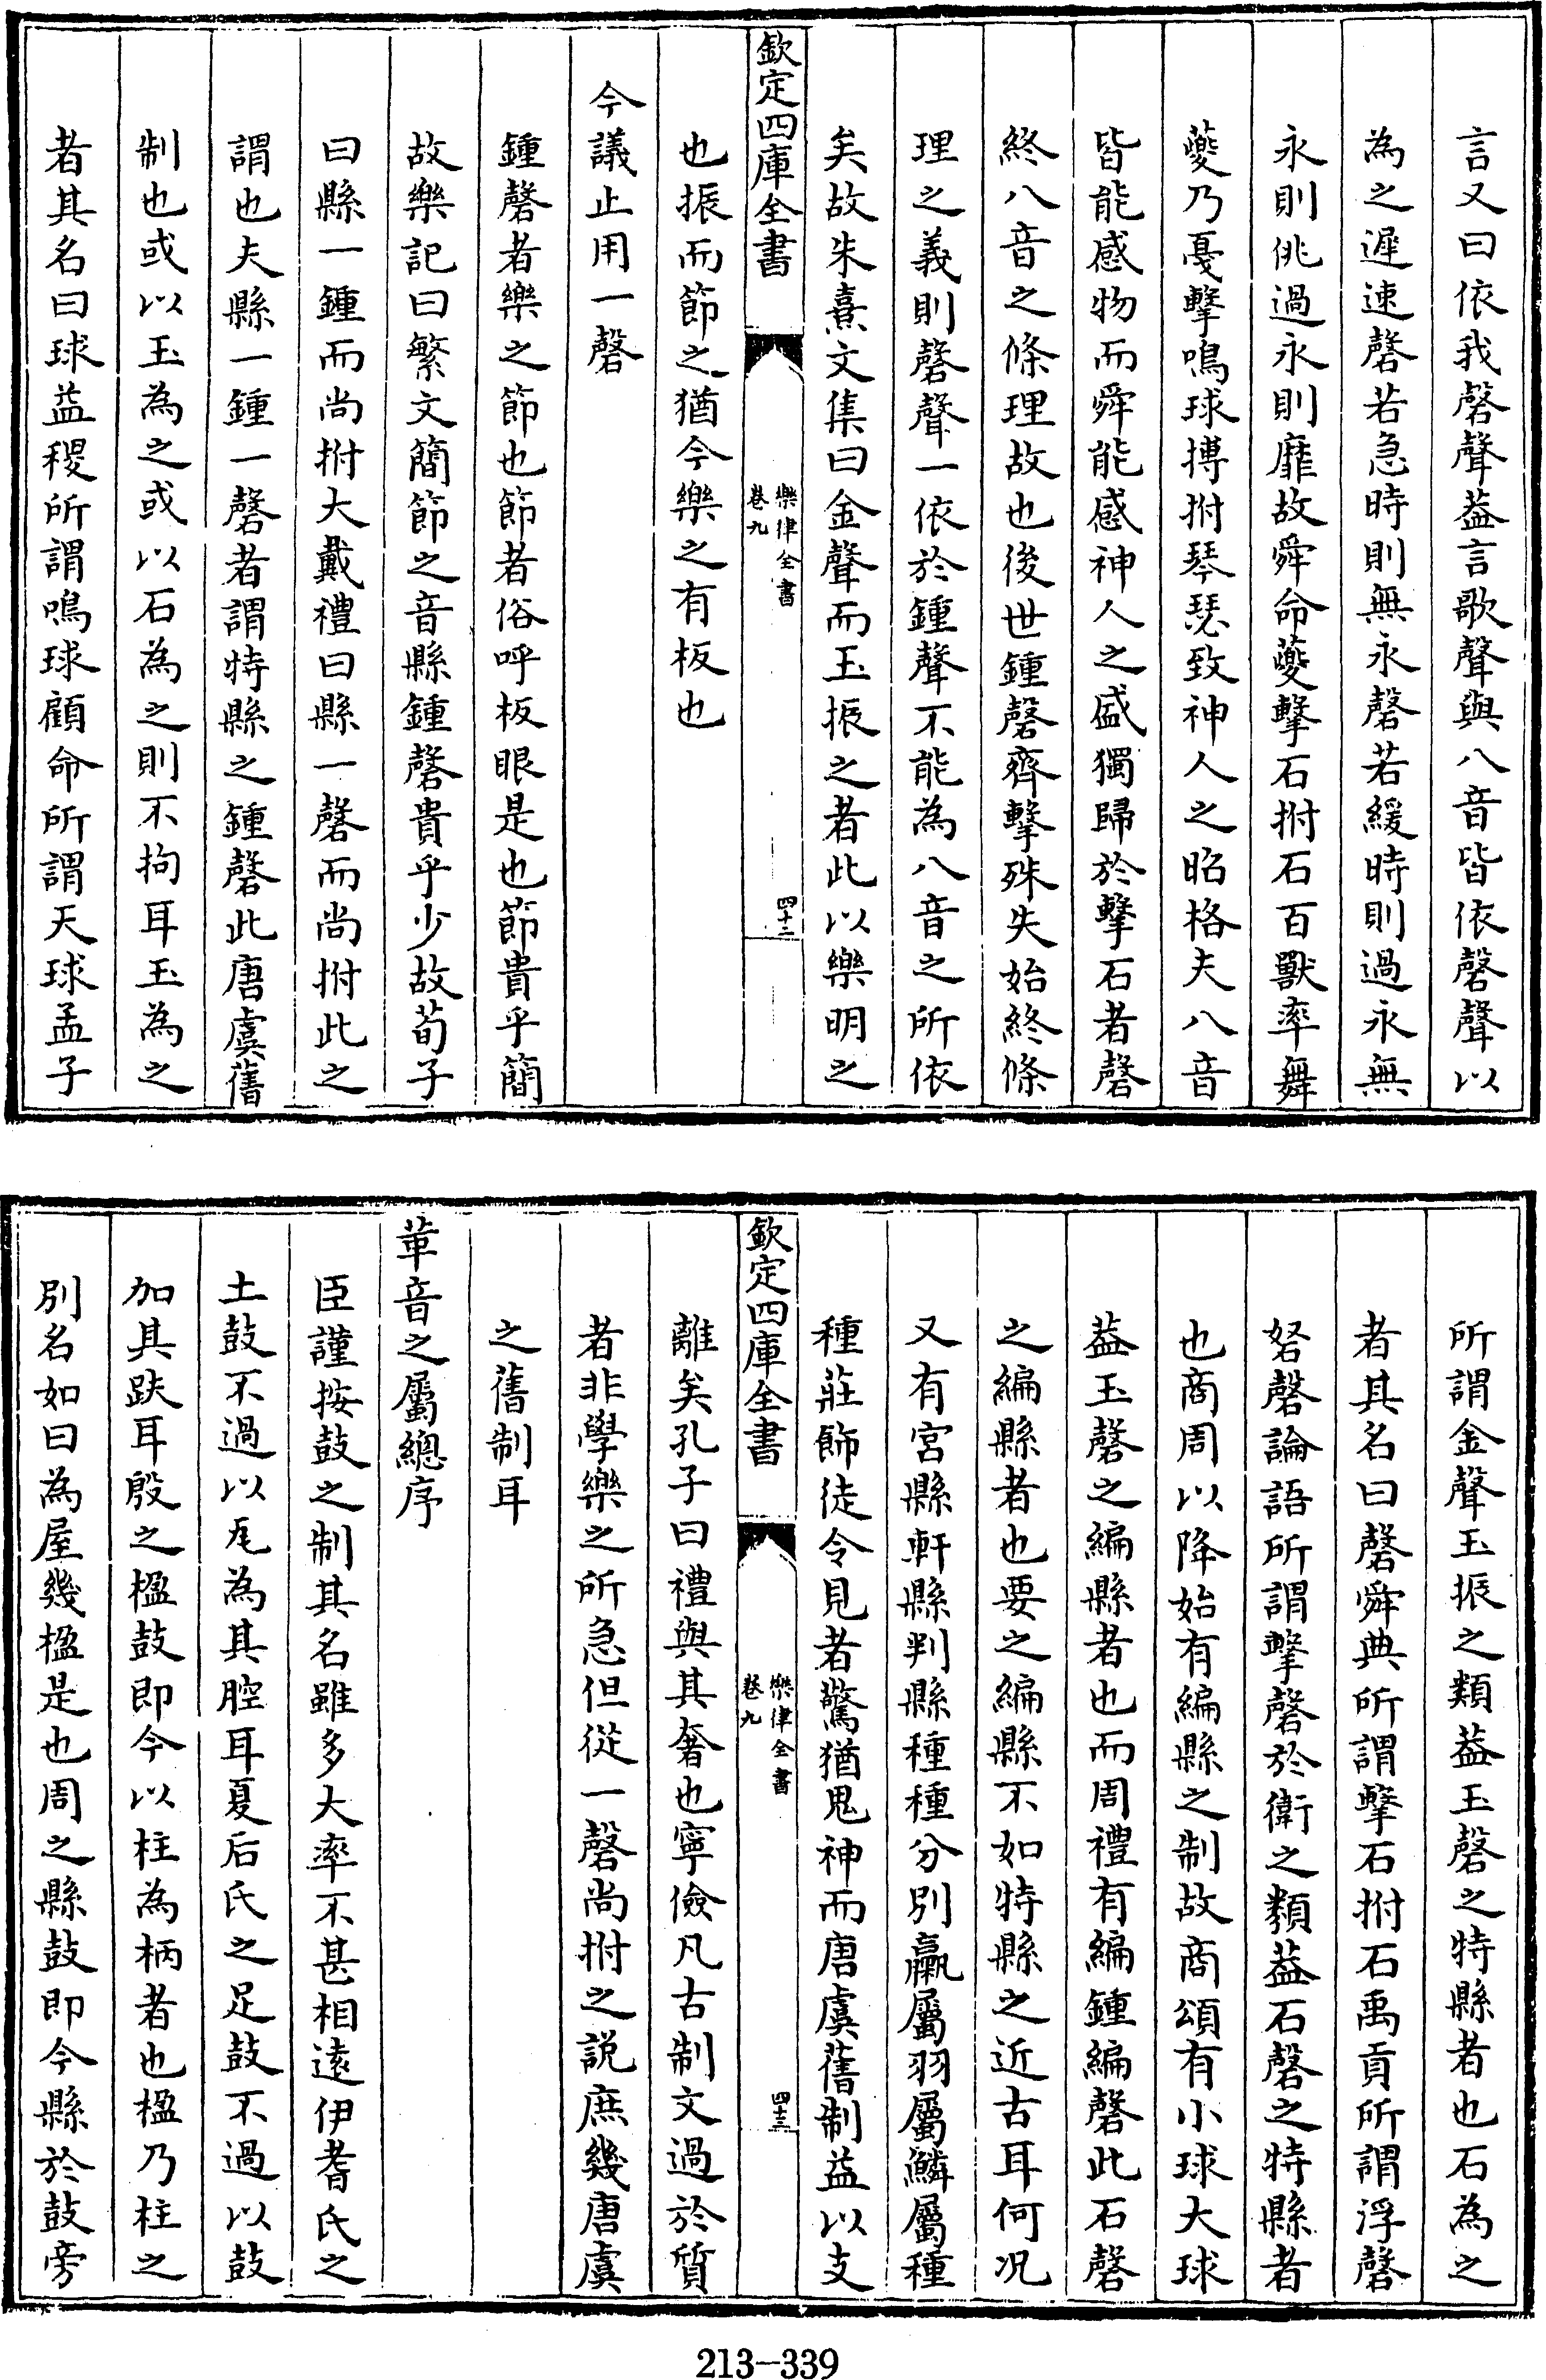 言又曰依我磬聲葢言歌聲與八音皆依磬聲以
為之遲速磬若急時則無永磬若緩時則過永無
永則佻過永則靡故舜命夔擊石拊石百獸率舞
夔乃戛擊鳴球搏拊琴瑟致神人之昭格夫八音
皆能感物而舜能感神人之盛獨歸於擊石者磬
終八音之條理故也後世鍾磬齊擊殊失始終條
理之義則磬聲一依於鍾聲不能為八音之所依
矣故朱熹文集曰金聲而玉振之者此以樂明之
欽定四庫全書
樂律全書
卷九
四十二
也振而節之猶今樂之有板也
今議止用一磬
鍾磬者樂之節也節者俗呼板眼是也節貴乎簡
故樂記曰繁文簡節之音縣鍾磬貴乎少故荀子
曰縣一鍾而尚拊大戴禮曰縣一磬而尚拊此之
謂也夫縣一鍾一磬者謂特縣之鍾磬此唐虞舊
制也或以玉為之或以石為之則不拘耳玉為之
者其名曰球益稷所謂鳴球顧命所謂天球孟子
所謂金聲玉振之類葢玉磬之特縣者也石為之
者其名曰磬舜典所謂擊石拊石禹貢所謂浮磬
砮磬論語所謂擊磬於衛之類葢石磬之特縣者
也商周以降始有編縣之制故商頌有小球大球
葢玉磬之編縣者也而周禮有編鍾編磬此石磬
之編縣者也要之編縣不如特縣之近古耳何况
又有宮縣軒縣判縣種種分別羸屬羽屬鱗屬種
種莊飾徒令見者驚猶鬼神而唐虞舊制益以支
欽定四庫全書
樂律全書
卷九
四十三
離矣孔子曰禮與其奢也寧儉凡古制文過於質
者非學樂之所急但從一磬尚拊之説庶幾唐虞
之舊制耳
革音之屬總序
臣謹按鼓之制其名雖多大率不甚相遠伊耆氏之
土鼓不過以瓦為其腔耳夏后氏之足鼓不過以鼓
加其趺耳殷之楹鼓即今以柱為柄者也楹乃柱之
別名如曰為屋幾楹是也周之縣鼓即今縣於鼓旁
213-339